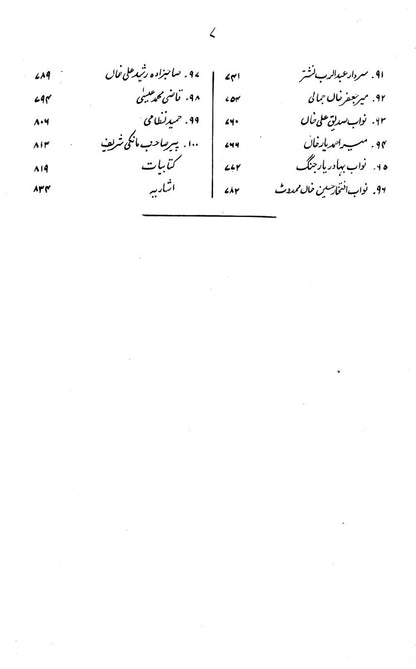 ۷
۹۱. سردار عبدالرب نشتر ۷۴۱
۹۲. میر جعفر خاں جمالی ۷۵۴
۶۳. نواب صدیق علی خاں ۷۶۰
۹۴. میر احمد یار خاں ۷۶۶
۶۵. نواب بہادر یار جنگ ۷۷۲
۹۶. نواب افتخار حسین خاں ممدوٹ ۷۸۲
۹۷. صاحبزادہ رشید علی خاں ۷۸۹
۹۸. قاضی محمد عیسیٰ ۷۹۴
۹۹. حمید نظامی ۸۰۶
۱۰۰. پیر صاحب مانکی شریف ۸۱۳
کتابیات ۸۱۹
اشاریہ ۸۳۴